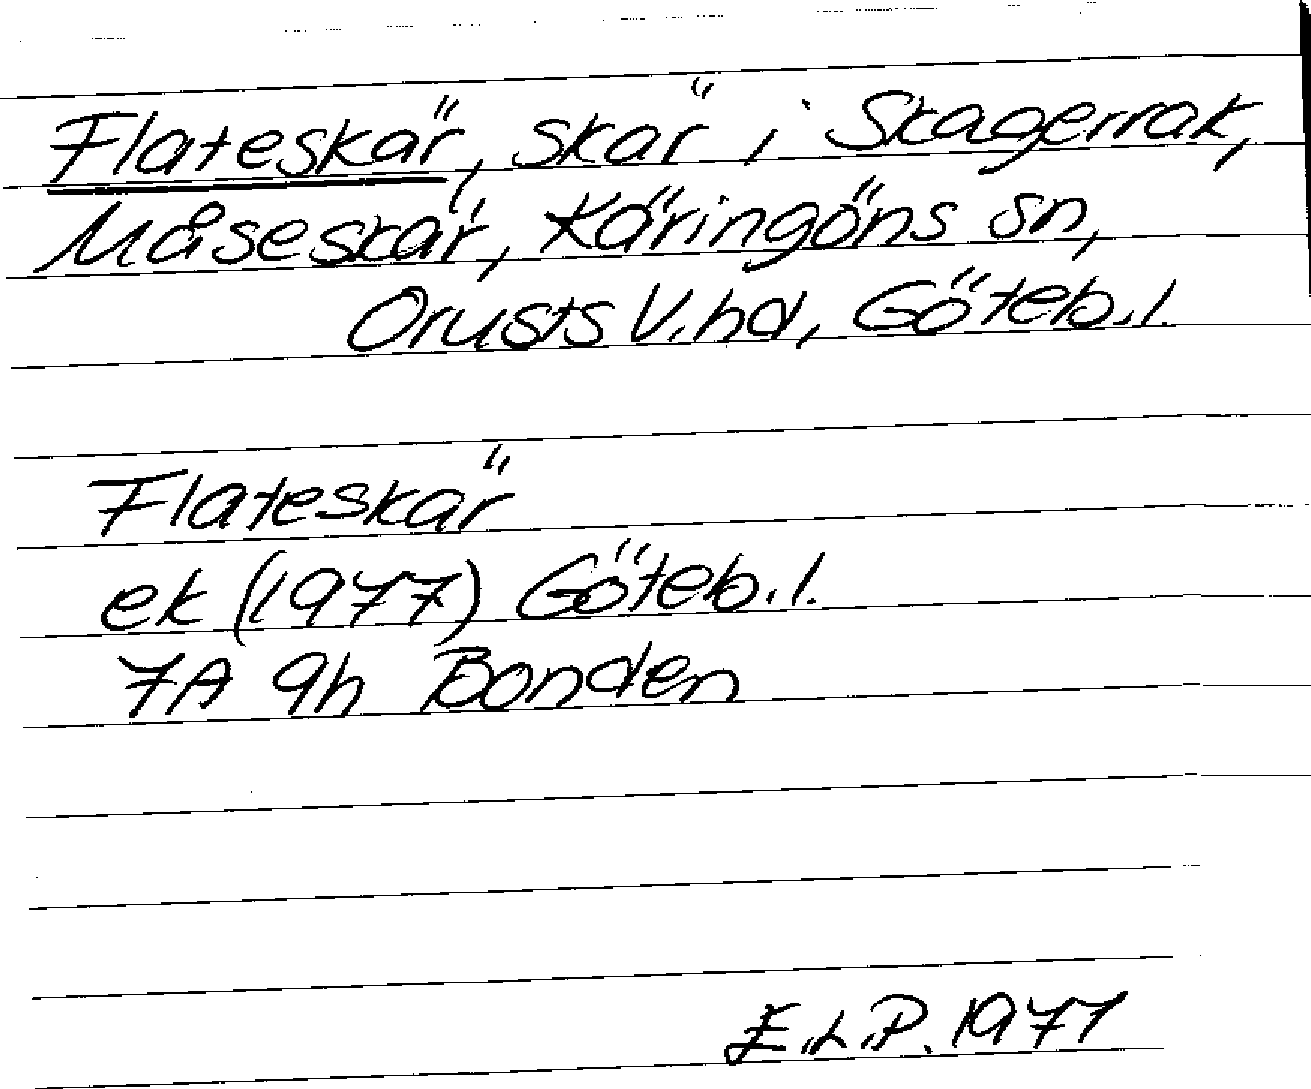 Flateskär, skär i Skagerrak,
Måseskär, Käringöns sn,
Orusts V. hd, Göteb. l.
Flateskär
ek (1977) Göteb. l.
7A 9h Bonden
E.L.P. 1977